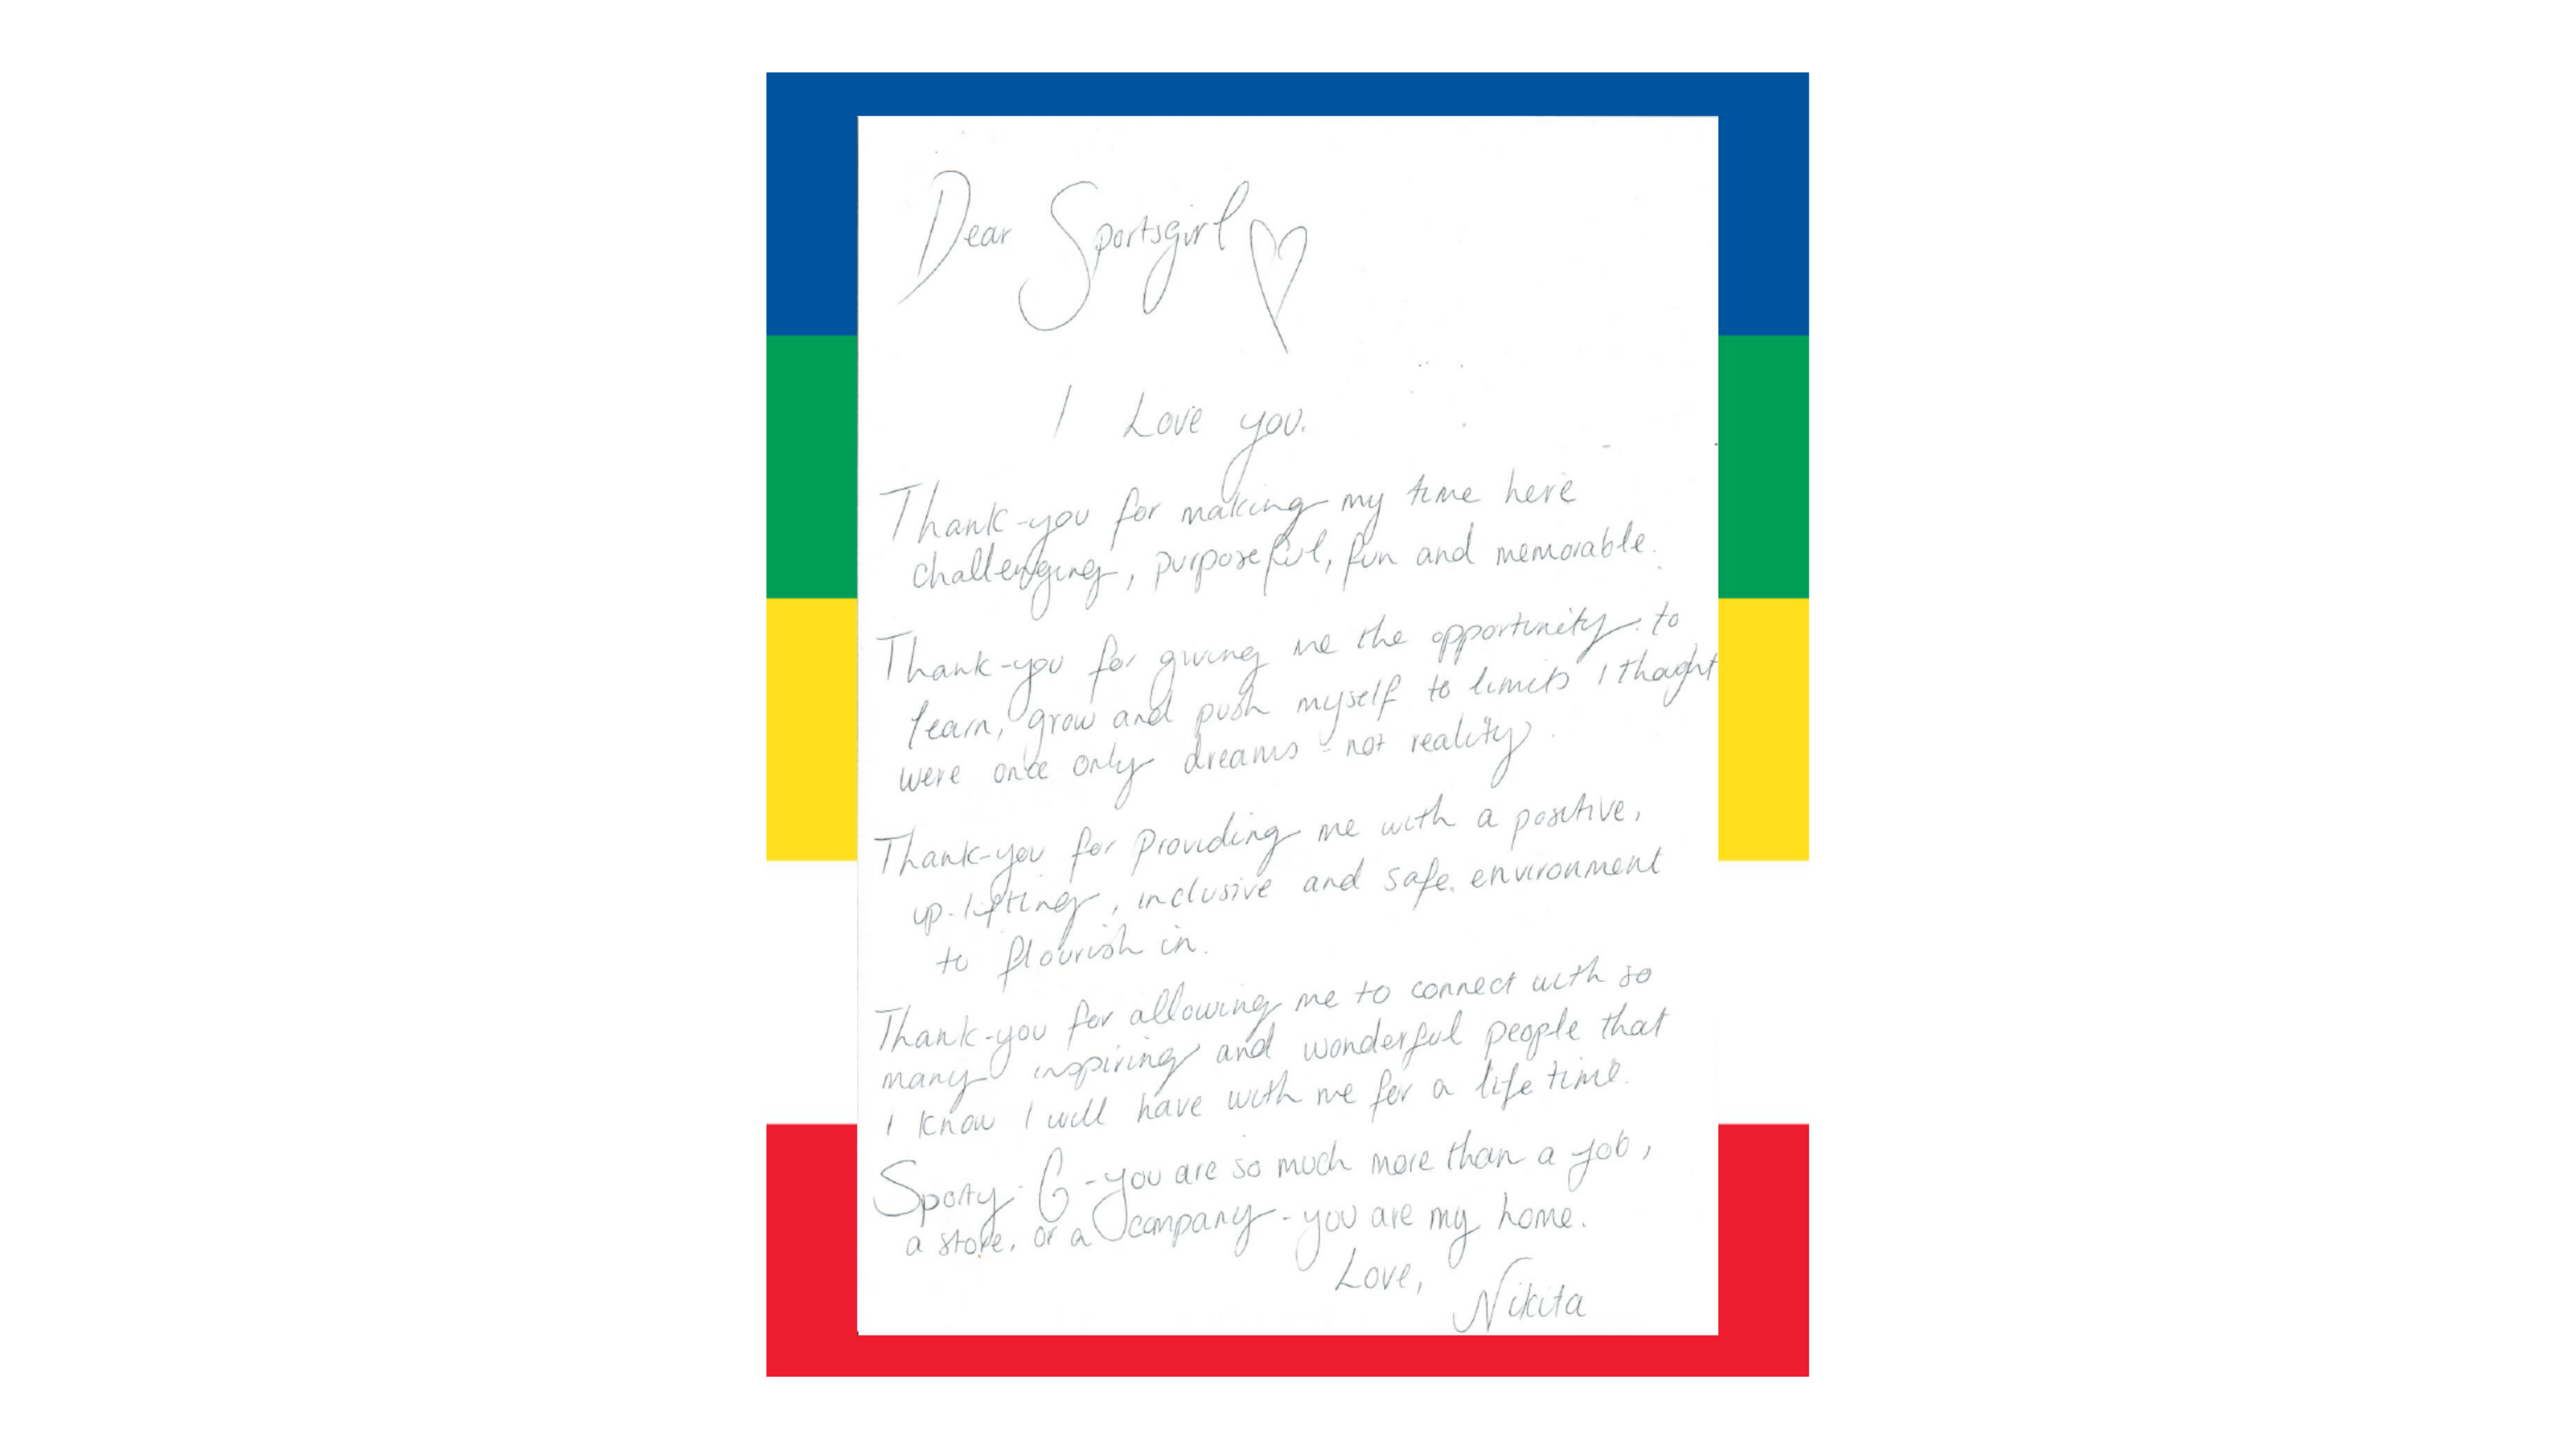 Dear Sportsgirl
I Love you.
Thank-you for making my time here
challenging, purposeful, fun and memorable.
Thank-you for giving me the opportunity to
learn, grow and push myself to limits I thought
were once only dreams - not reality.
Thank-you for providing me with a positive,
up-lifting, inclusive and safe environment
to flourish in.
Thank-you for allowing me to connect with so
many inspiring and wonderful people that
I know I will have with me for a life time.
Sporty-G - you are so much more than a job,
a store, or a company - you are my home.
Love,
Nikita